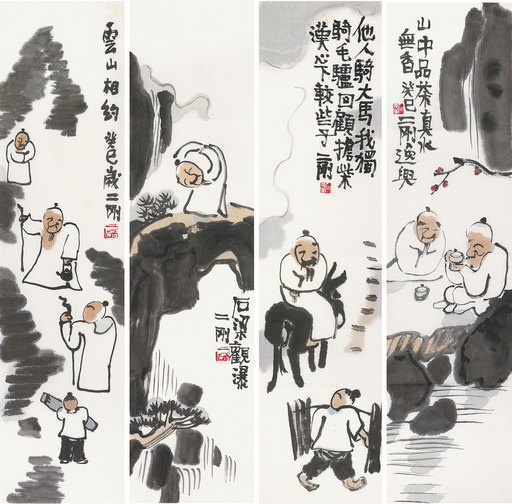 雲山相約 癸巳歲 二剛
石梁觀瀑
二剛
他人騎大馬我獨
騎毛驢回顧擔柴
漢心下較些子 二剛
山中品茶真水
無香 癸巳 二剛逸興